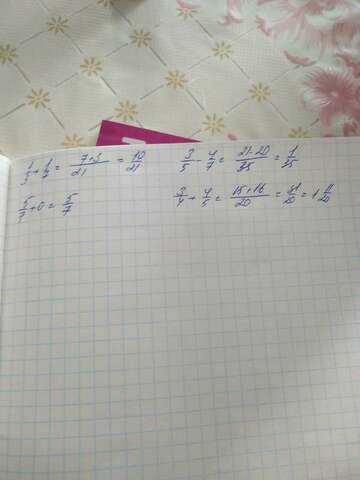 1/3 + 1/7 = 7+3/21 = 10/21
3/5 - 4/7 = 21-20/35 = 1/35
5/7 + 0 = 5/7
3/4 + 4/5 = 15+16/20 = 31/20 = 1 11/20